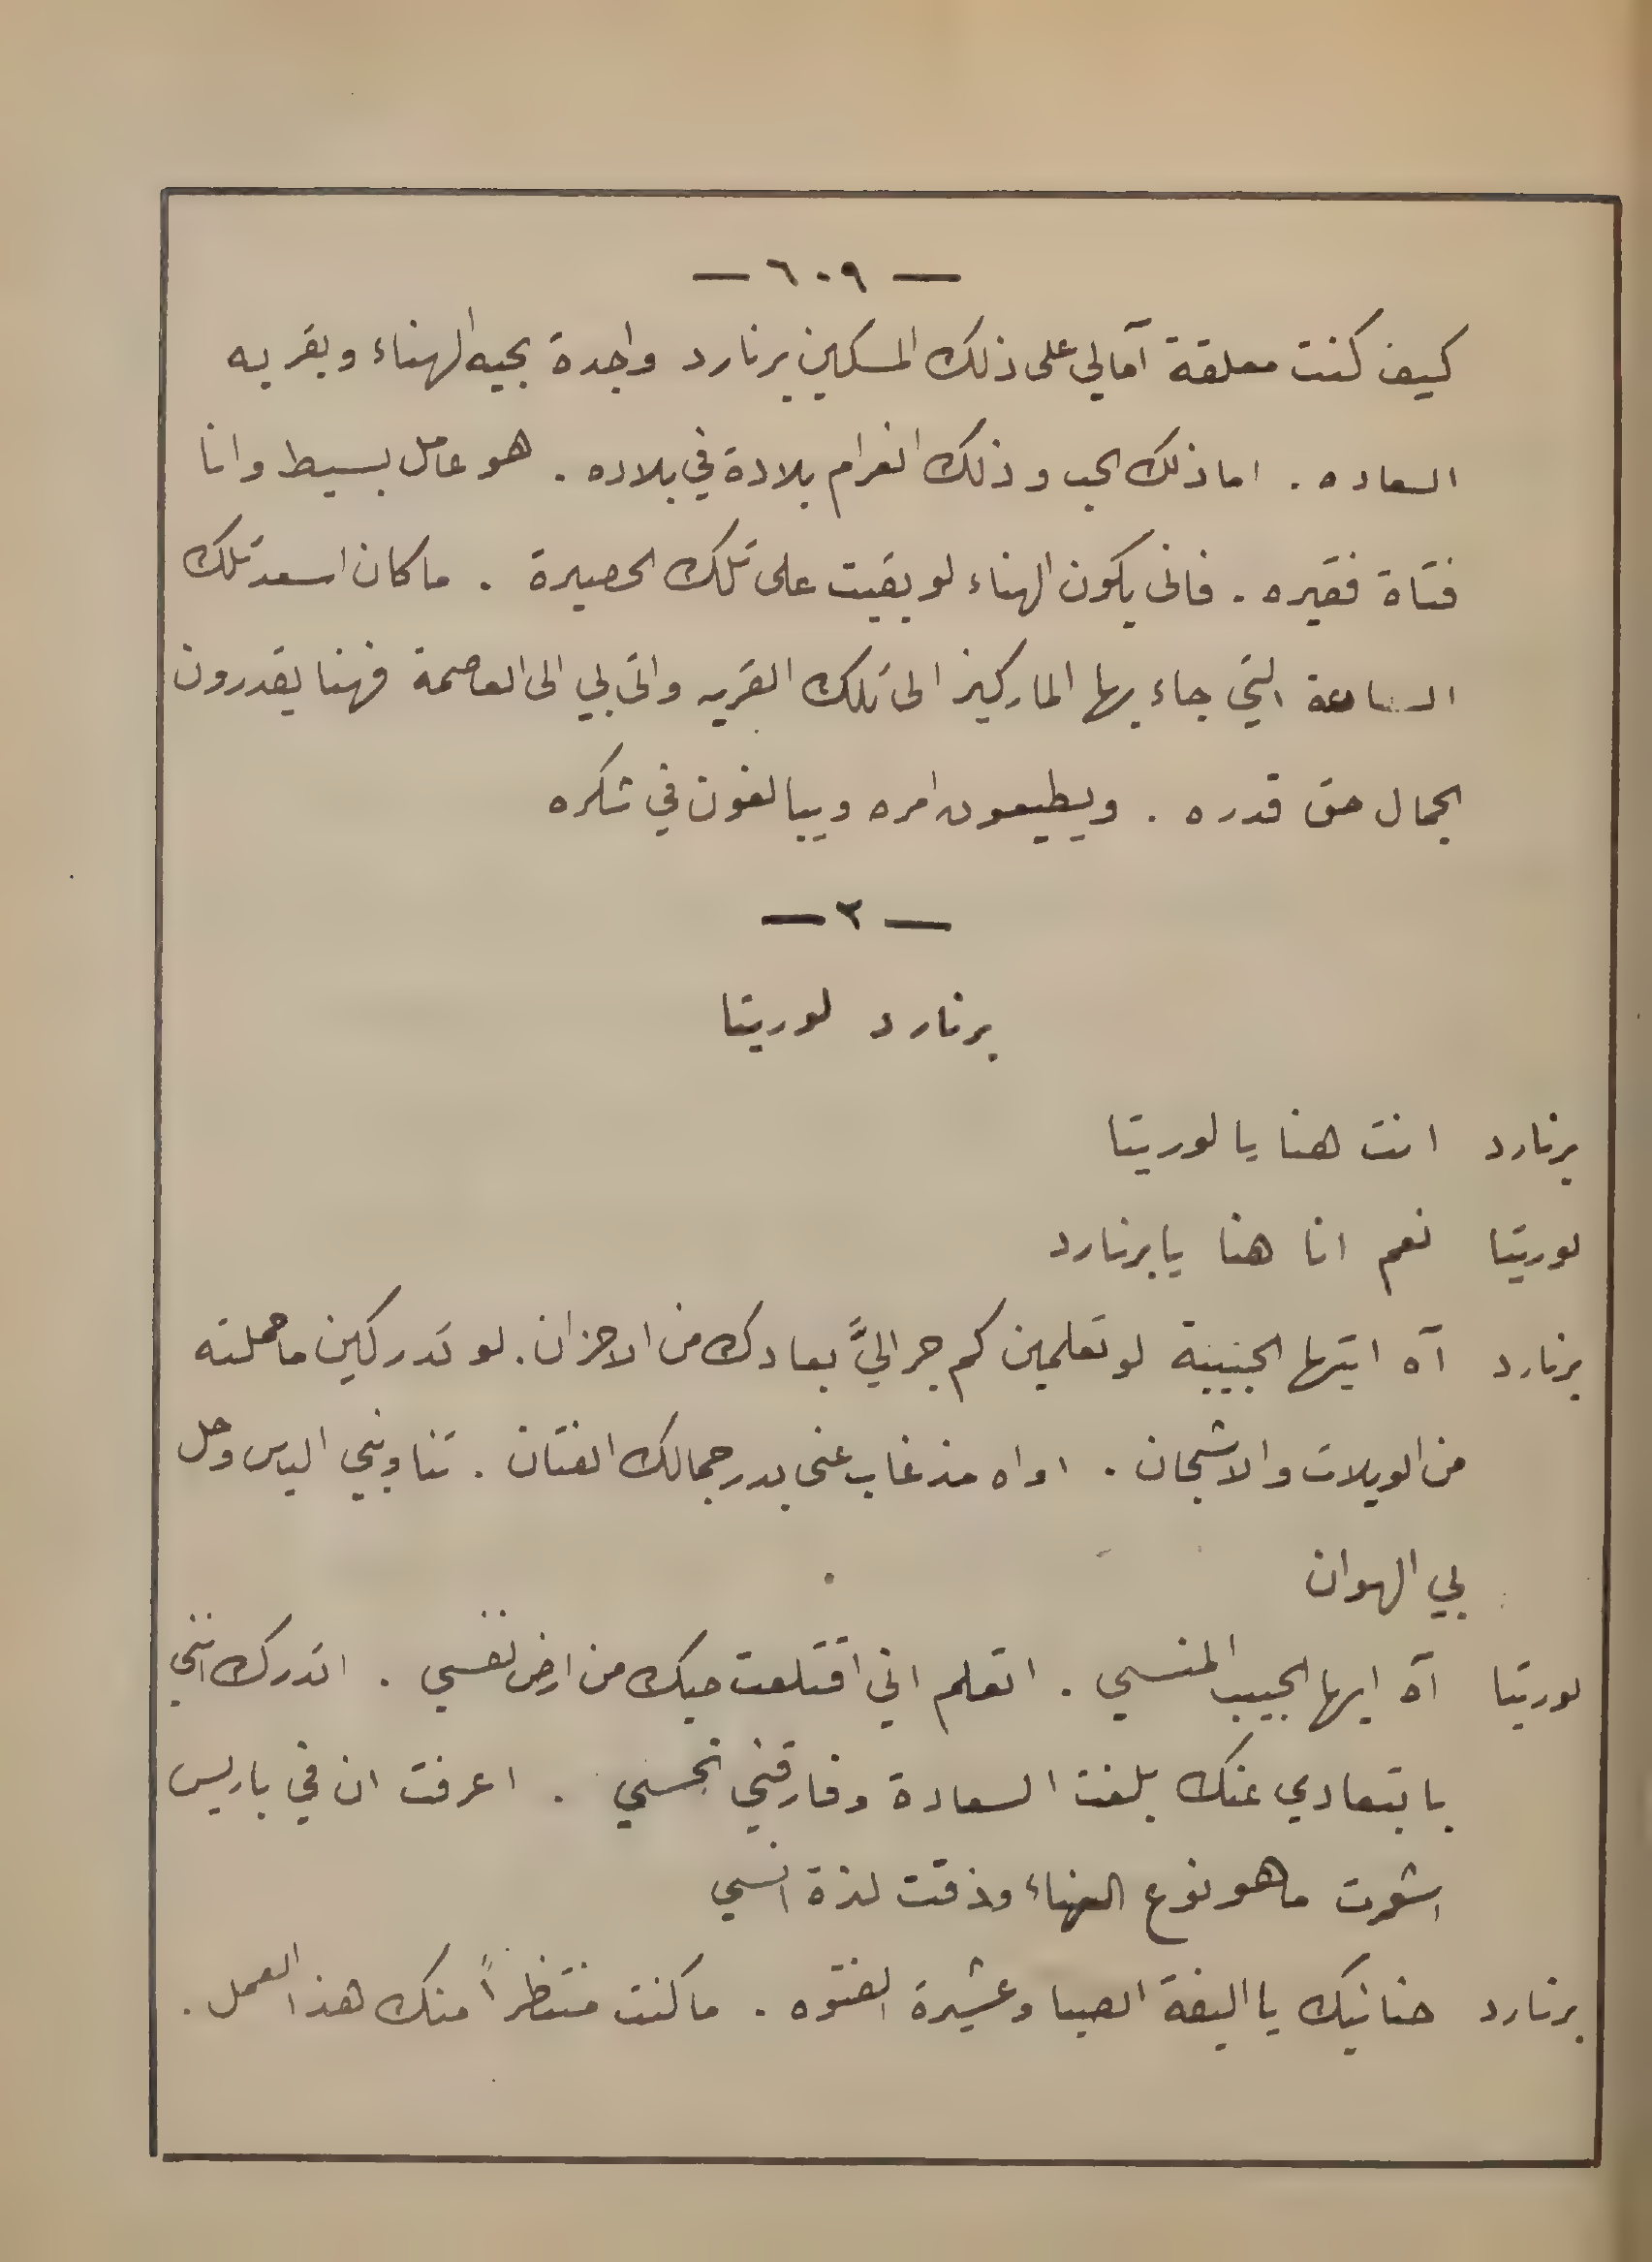 — ٦٠٩ —
كيف كنت معلقة آمالي على ذلك المسكين برنارد واجدة بحبه الهناء وبقربه
السعاده . اما ذلك الحب وذلك الغرام بلادة في بلاده . هو عامل بسيط وانا
فتاة فقيره . فانى يكون الهناء لو بقيت على تلك الحصيرة . ما كان اسعد تلك
الساعة التي جاء بها الماركيز الى تلك القريه واتى بي الى العاصمة فهنا يقدرون
الجمال حق قدره . ويطيعون امره ويبالغون في شكره
— ٢ —
برنارد لوريتا
برنارد انت هنا يا لوريتا
لوريتا نعم انا هنا يا برنارد
برنارد آه ايتها الحبيبة لو تعلمين كم جر اليَّ بعادك من الاحزان . لو تدركين ما حملته
من الويلات والاشجان . اواه مذ غاب عني بدر جمالك الفتان . تناوبني الياس وحل
بي الهوان
لوريتا آه ايها الحبيب المنسي . اتعلم اني اقتلعت حبك من ارض نفسي . اتدرك انني
بابتعادي عنك بلغت السعادة وفارقني نحسي . اعرفت ان في باريس
اشعرت ما هو نوع الهناء وذقت لذة انسي
برنارد حنانيك يا اليفة الصبا وعشيرة الفتوه . ما كنت منتظراً منك هذا العمل .